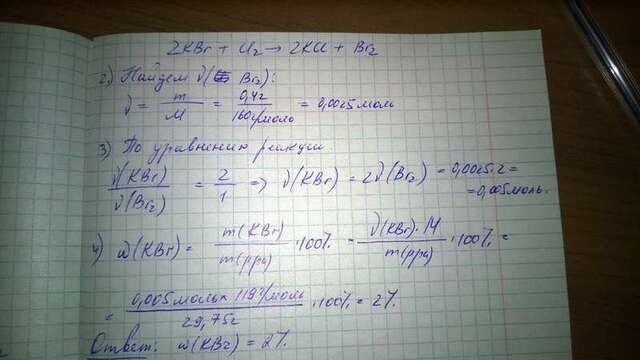 2KBr + Cl₂ → 2KCl + Br₂
2) Найдем ν(Br₂):
ν = m/M = 0,4г/160г/моль = 0,0025моль
3) По уравнению реакции
ν(KBr)/ν(Br₂) = 2/1 => ν(KBr) = 2ν(Br₂) = 0,0025·2=
=0,005моль.
4) ω(KBr) = m(KBr)/m(рра) ·100% = ν(KBr)·M/m(рра) ·100% =
= 0,005моль × 119г/моль/29,75г ·100% = 2%.
Ответ: ω(KBr) = 2%.